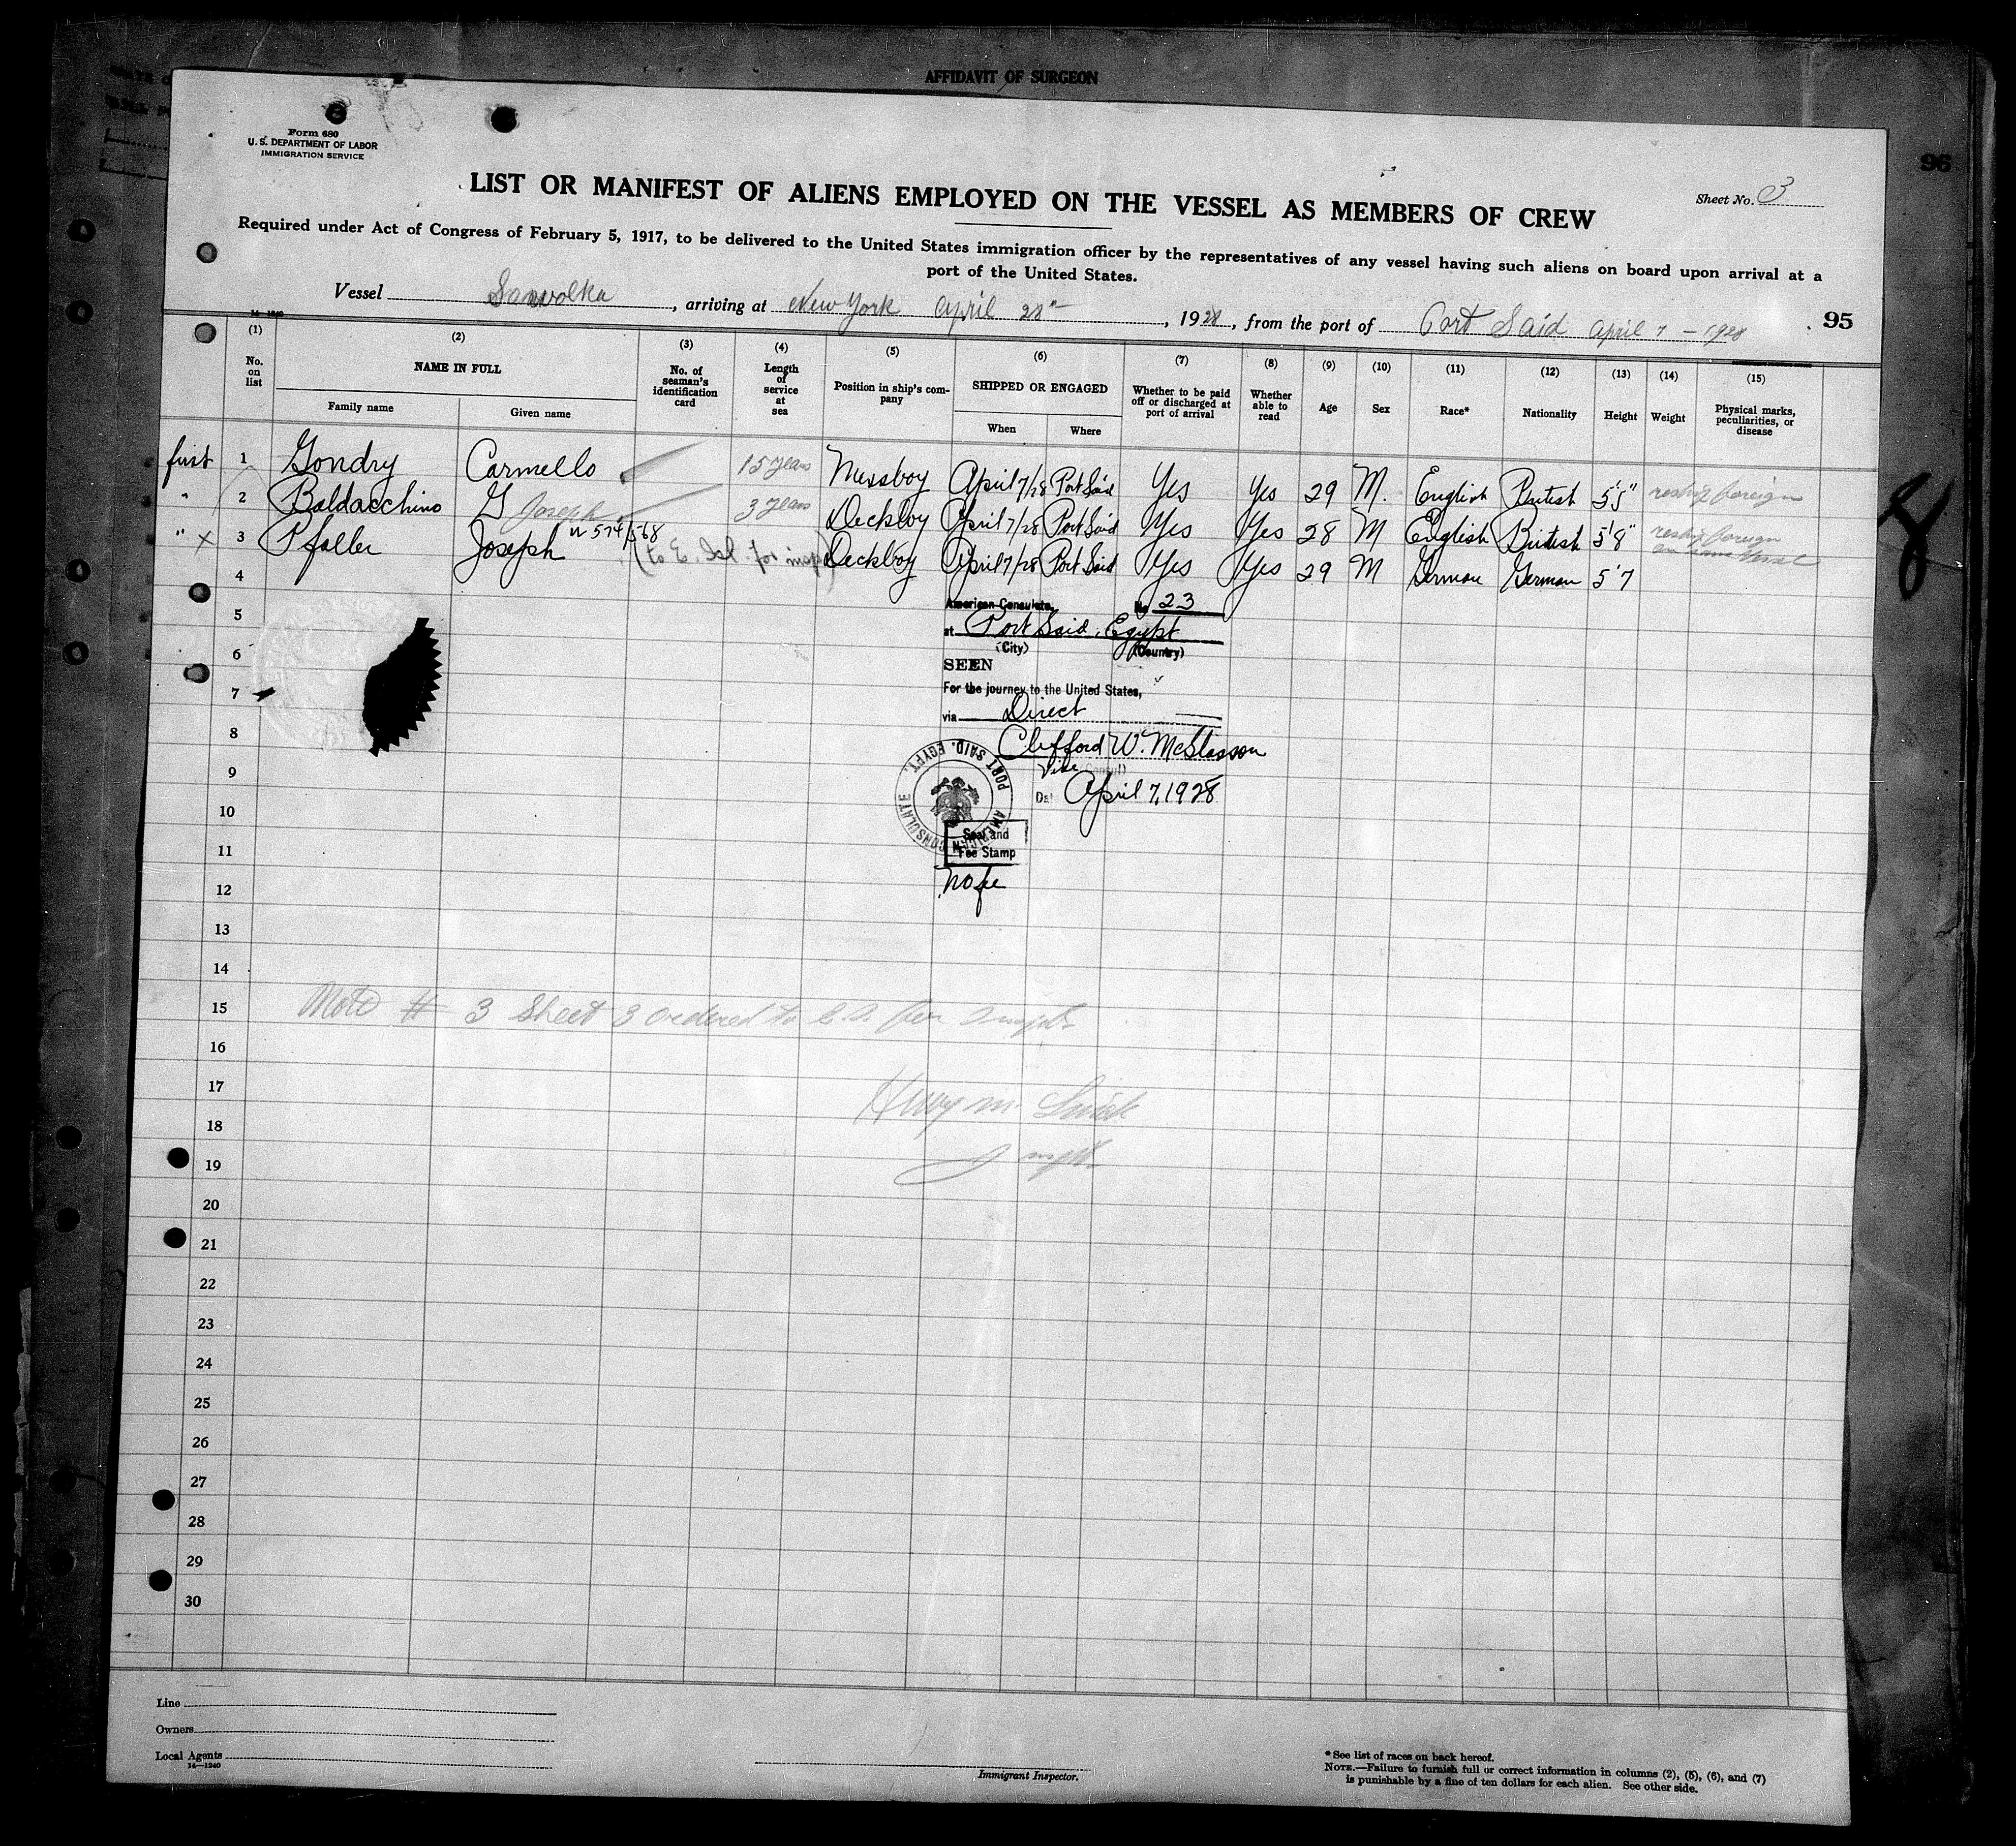 AFFIDAVIT OF SURGEON
96
Form 680
U. S. DEPARTMENT OF LABOR
IMMIGRATION SERVICE
LIST OR MANIFEST OF ALIENS EMPLOYED ON THE VESSEL AS MEMBERS OF CREW
Sheet No. 3
Required under Act of Congress of February 5, 1917, to be delivered to the United States immigration officer by the representatives of any vessel having such aliens on board upon arrival at a
port of the United States.
Vessel, arriving at New York April 28th, 1928, from the port of Port Said April 7 - 1928
95
(1) (2) (3) (4) (5) (6) (7) (8) (9) (10) (11) (12) (13) (14) (15)
No. on list NAME IN FULL Family name Given name No. of seaman's identification card Length of service at sea Position in ship's company SHIPPED OR ENGAGED When Where Whether to be paid off or discharged at port of arrival Whether able to read Age Sex Race* Nationality Height Weight Physical marks, peculiarities, or disease
first 1 Gondry Carmello 15 years Messboy April 7/28 Port Said Yes Yes 29 M. English British 5'5" reship foreign
" 2 Baldacchino G Joseph 3 years Deckboy April 7/28 Port Said Yes Yes 28 M English British 5'8" reship foreign on same vessel
" x 3 Pfaller Joseph 574/568 (to E. Isl. for insp) Deckboy April 7/28 Port Said Yes Yes 29 M German German 5'7
4
American Consulate, No 23
5
at Port Said, Egypt
(City) (Country)
6
SEEN
7
For the journey to the United States,
via Direct
8
Clifford W.
Vice Consul
9
Dat April 7, 1928
AMERICAN CONSULATE PORT SAID, EGYPT.
10
Seal and
11
Fee Stamp
12
No fee
13
14
15
Note # 3 Sheet 3 ordered to E.I. for
16
17
18
19
20
21
22
23
24
25
26
27
28
29
30
Line
Owners
Local Agents
14—1240
Immigrant Inspector.
* See list of races on back hereof.
NOTE.—Failure to furnish full or correct information in columns (2), (5), (6), and (7)
is punishable by a fine of ten dollars for each alien. See other side.